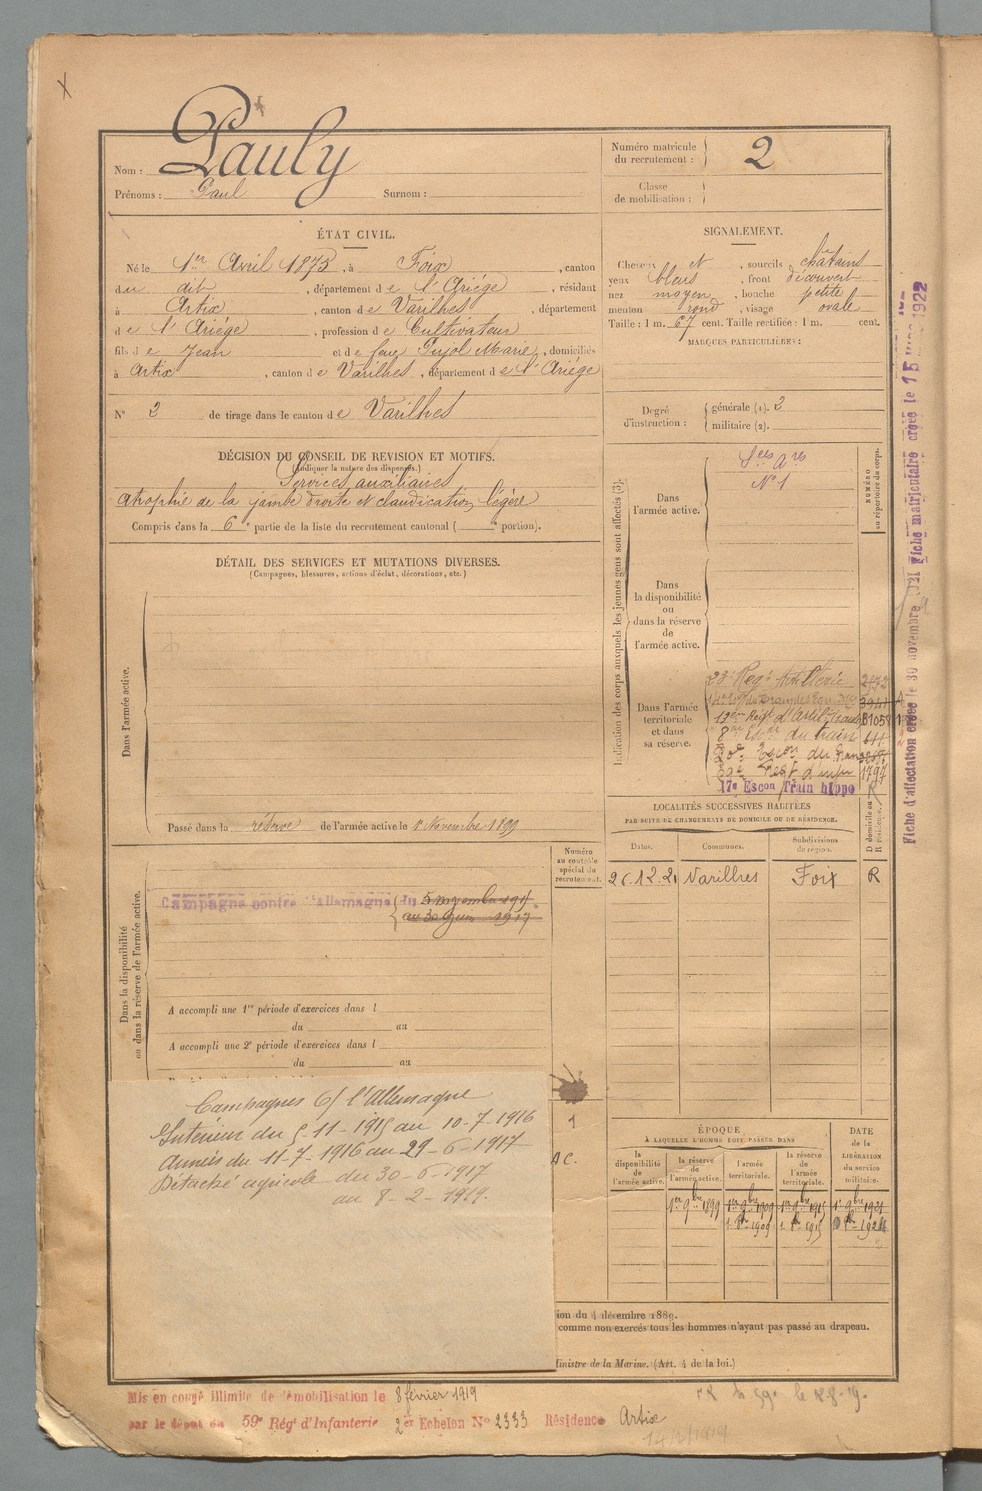 Pauly
Nom :
Prénoms : Paul Surnom :
Numéro matricule du recrutement : 2
Classe de mobilisation :
ÉTAT CIVIL.
Né le 1er Avril 1873, à Foix, canton
du dit, département de l'Ariége, résidant
à Artix, canton de Varilhes, département
de l'Ariége, profession de Cultivateur
fils de Jean et de feue Pujol Marie, domiciliés
à Artix, canton de Varilhes, département de l'Ariége
N° 2 de tirage dans le canton de Varilhes
SIGNALEMENT.
Cheveux et, sourcils châtains
yeux bleus, front découvert
nez moyen, bouche petite
menton rond, visage ovale
Taille : 1 m. 67 cent. Taille rectifiée : 1 m. cent.
MARQUES PARTICULIÈRES :
Degré d'instruction : générale (1). 2
militaire (2).
DÉCISION DU CONSEIL DE REVISION ET MOTIFS.
(Indiquer la nature des dispenses.)
Services auxiliaires
atrophie de la jambe droite et claudication légère
Compris dans la 6e partie de la liste du recrutement cantonal ( e portion).
DÉTAIL DES SERVICES ET MUTATIONS DIVERSES.
(Campagnes, blessures, actions d'éclat, décorations, etc.)
Dans l'armée active.
Passé dans la réserve de l'armée active le 1er Novembre 1899
Indication des corps auxquels les jeunes gens sont affectés (3).
NUMÉRO au répertoire du corps.
Dans l'armée active.
Sces Ares
N° 1
Dans la disponibilité ou dans la réserve de l'armée active.
Dans l'armée territoriale et dans sa réserve.
23e Regt Artillerie
8e Escon du train
17e Escon Train hippo R
1797
LOCALITÉS SUCCESSIVES HABITÉES
PAR SUITE DE CHANGEMENTS DE DOMICILE OU DE RÉSIDENCE.
D domicile ou R résidence.
Dates. Communes. Subdivisions de région.
26.12.21 Varilhes Foix R
Numéro au contrôle spécial du recrutement.
Dans la disponibilité ou dans la réserve de l'armée active.
Campagne contre l'Allemagne du 5 novembre 1915
au 30 Juin 1917
A accompli une 1re période d'exercices dans l
du au
A accompli une 2e période d'exercices dans l
du au
Campagnes C/ l'Allemagne
Intérieur du 5-11-1915 au 10-7-1916
Armées du 11-7-1916 au 29-6-1917
Détaché agricole du 30-6-1917
au 8-2-1919.
1
AC.
ÉPOQUE
À LAQUELLE L'HOMME DOIT PASSER DANS
la disponibilité de l'armée active.
la réserve de l'armée active.
l'armée territoriale.
la réserve de l'armée territoriale.
DATE de la LIBÉRATION du service militaire.
1er 9bre 1899 1er 9bre 1909 1er 9bre 1915 1er 9bre 1921
ion du 4 décembre 1889.
comme non exercés tous les hommes n'ayant pas passé au drapeau.
Ministre de la Marine. (Art. 4 de la loi.)
Mis en congé illimité de démobilisation le 8 février 1919
par le dépôt du 59e Régt d'Infanterie 2er Echelon N° 2333 Résidence Artix
Fiche d'affectation créée le 30 novembre 1921
Fiche matriculaire créée le 15 1922